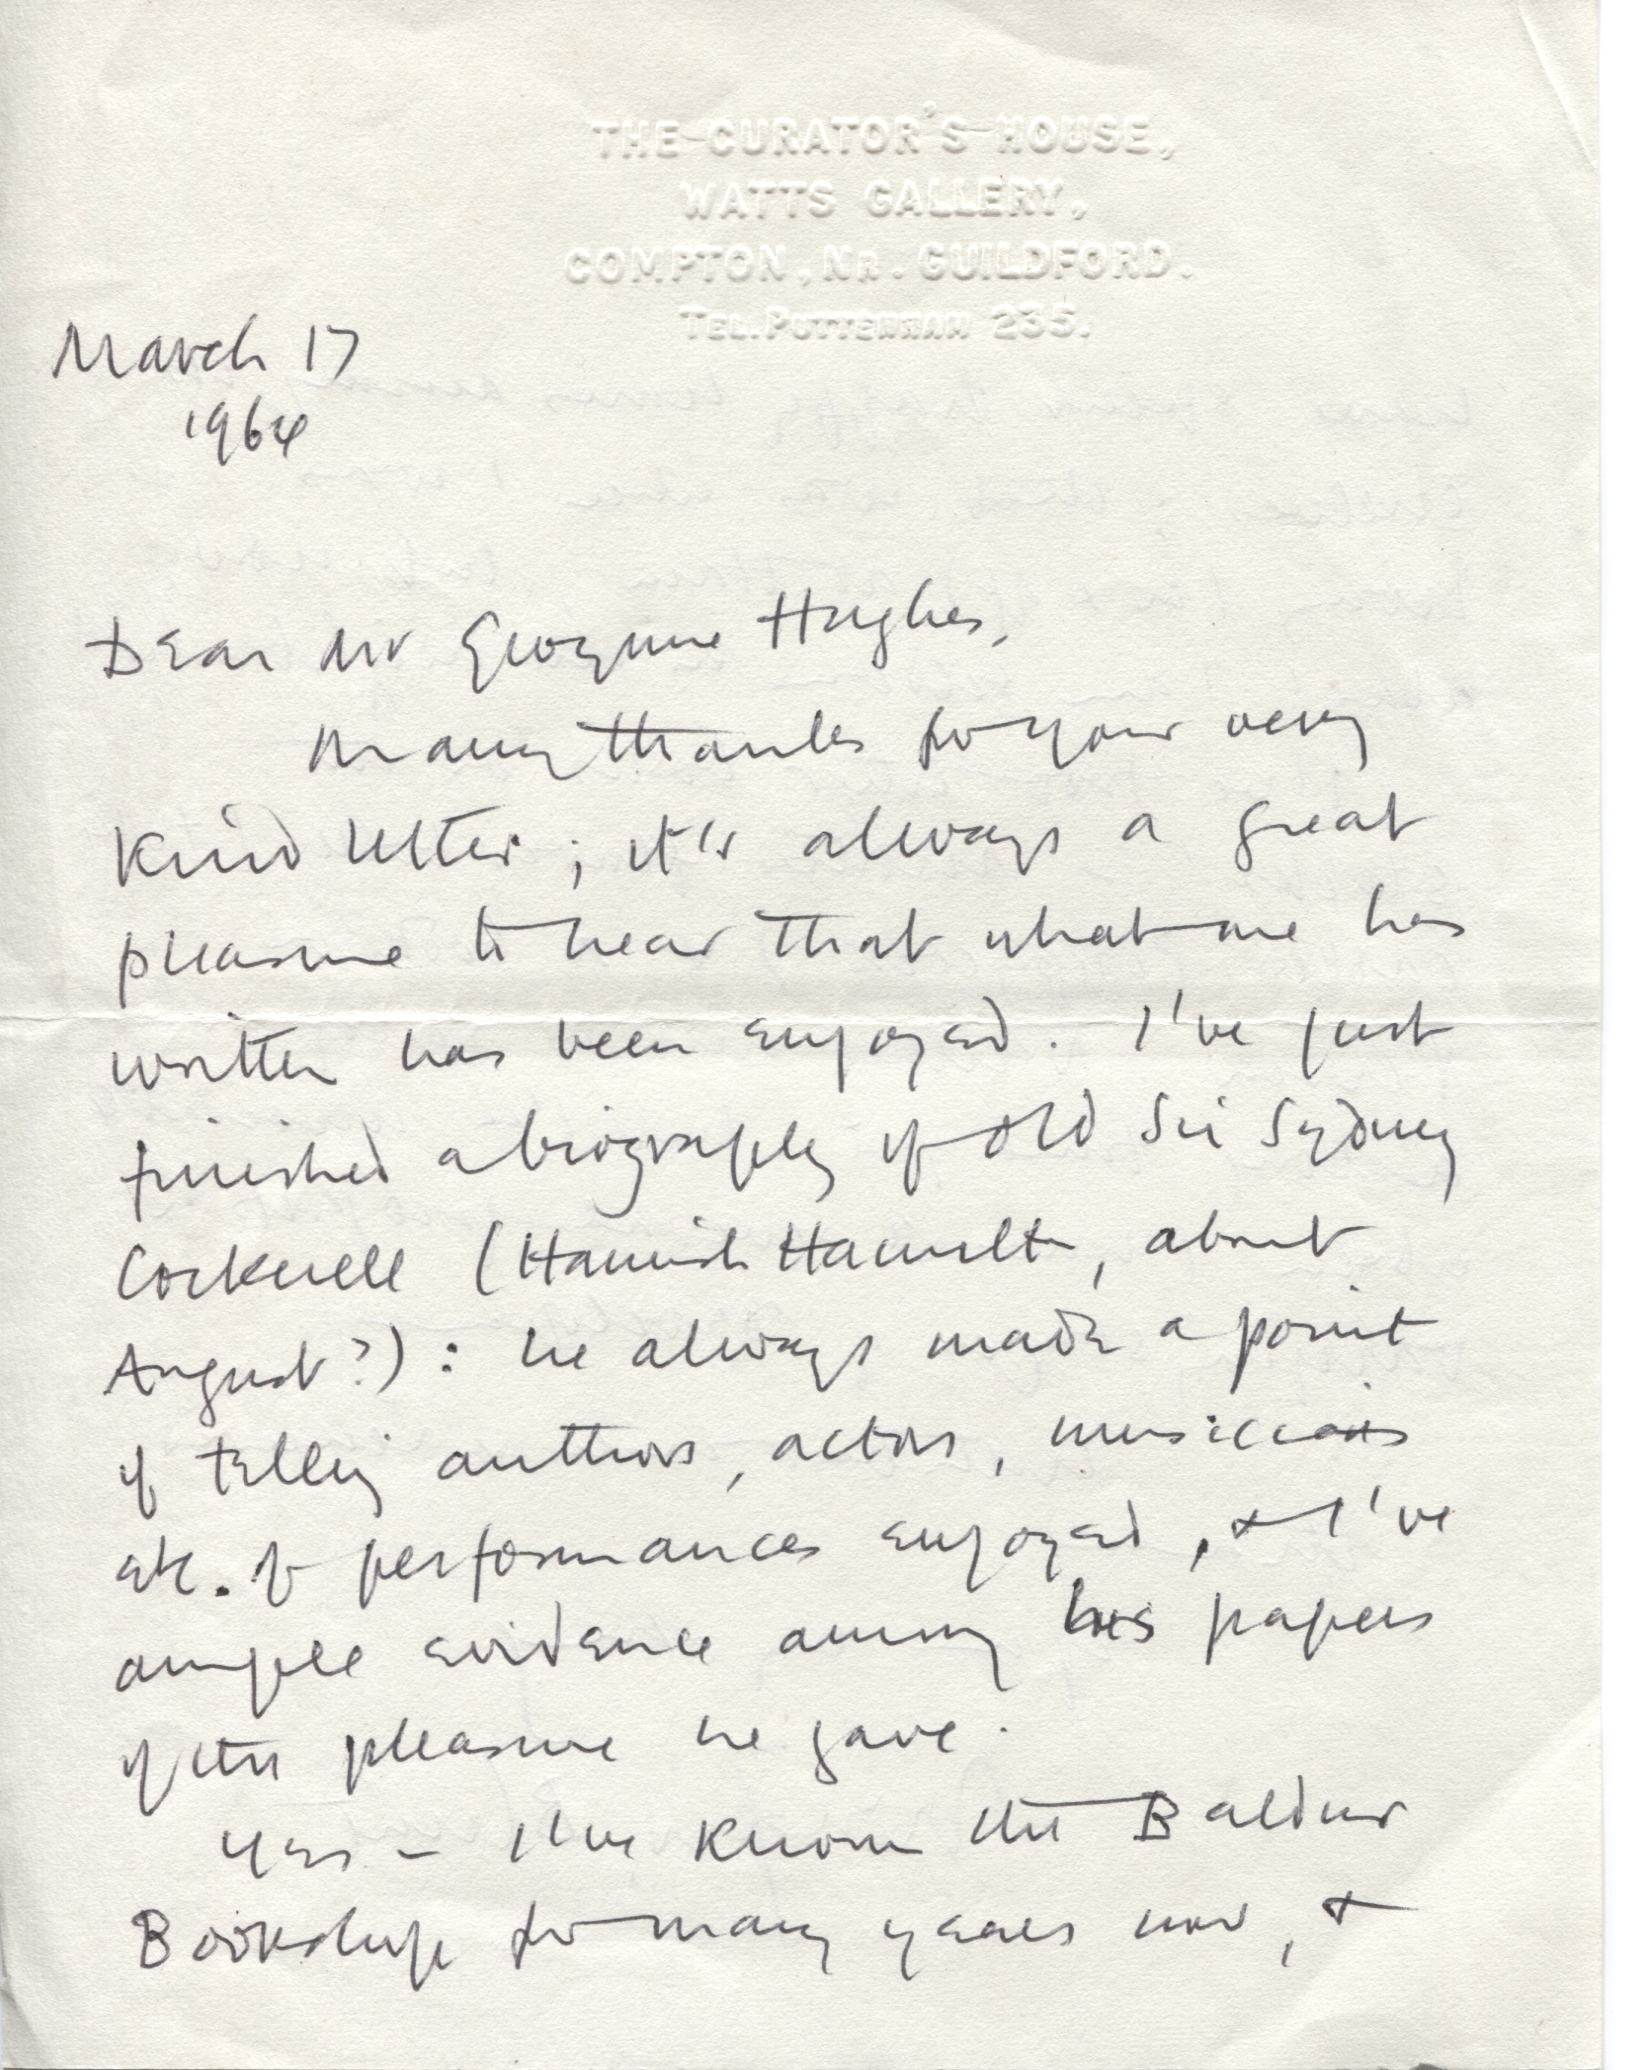 THE CURATOR'S HOUSE,
WATTS GALLERY,
COMPTON, NR. GUILDFORD.
TEL. PUTTENHAM 235.
March 17
1964
Dear Mr Gwynne Hughes,
Many thanks for your very
kind letter; it's always a great
pleasure to hear that what one has
written has been enjoyed. I've just
finished a biography of old Sir Sydney
Cockerell (Hamish Hamilton, about
August?): he always made a point
of telling authors, actors, musicians
etc. of performances enjoyed, & I've
ample evidence among his papers
of the pleasure he gave.
Yes – I've known the Baldur
Bookshop for many years now, &